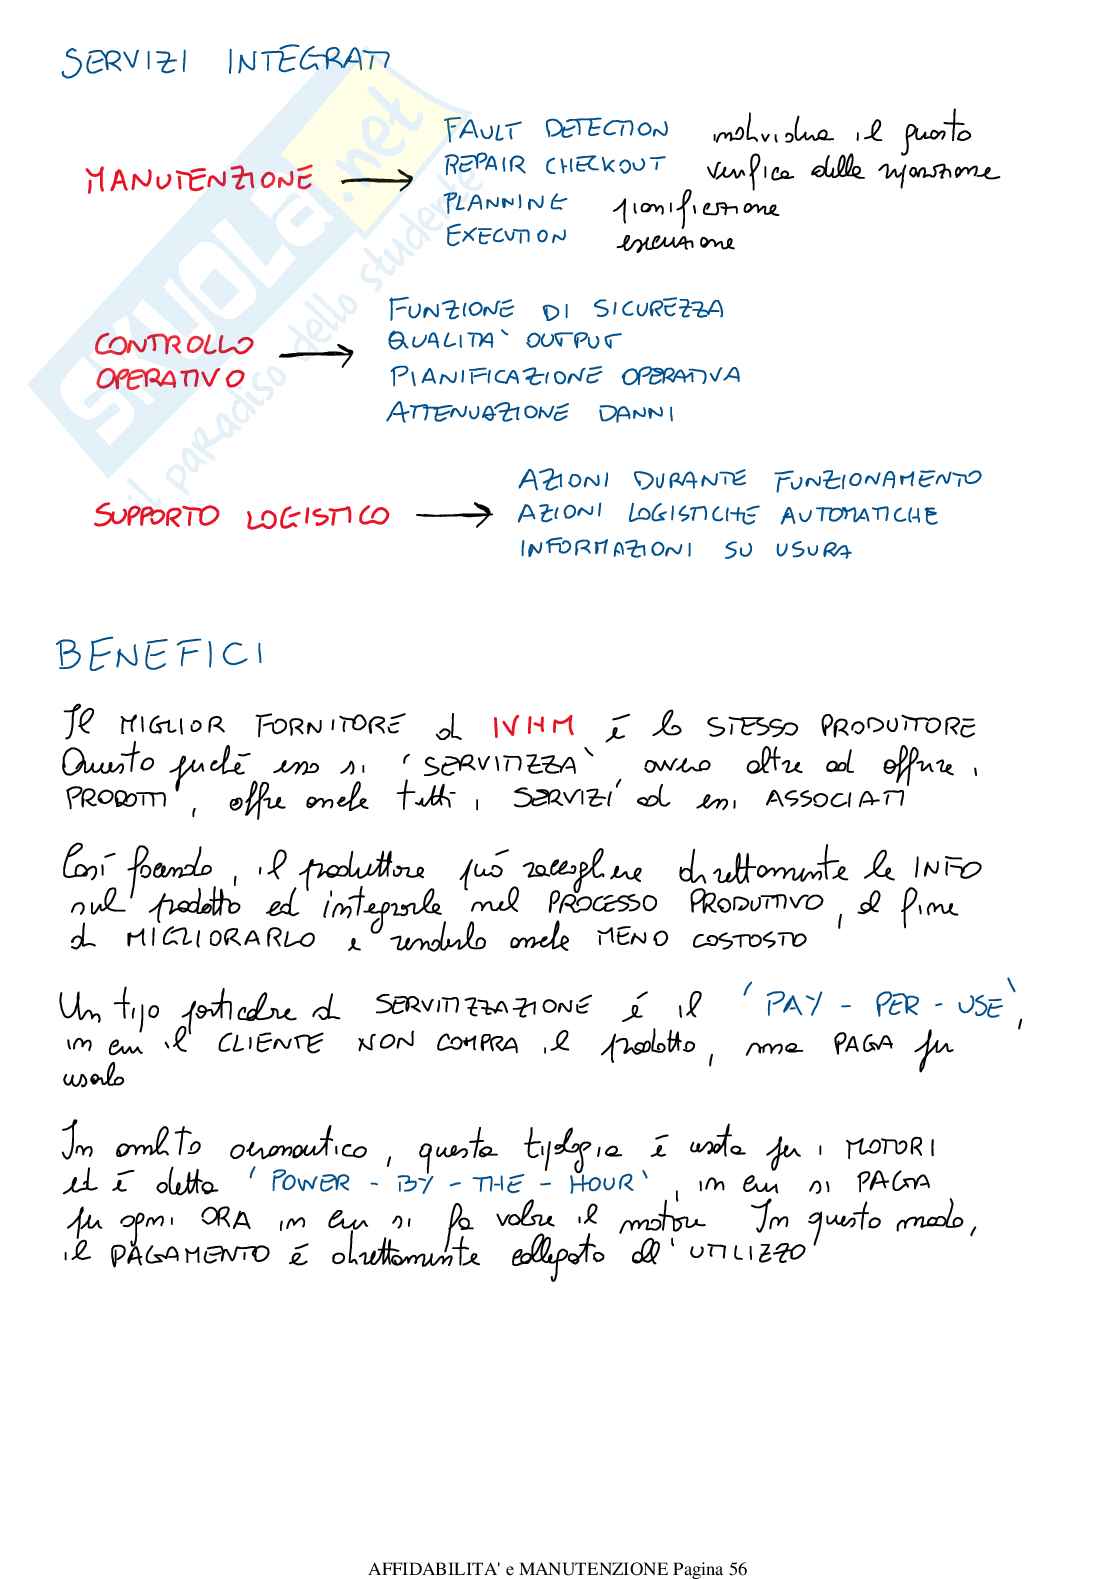 SERVIZI INTEGRATI
MANUTENZIONE → FAULT DETECTION individua il guasto
REPAIR CHECKOUT verifica della riparazione
PLANNING pianificazione
EXECUTION esecuzione
CONTROLLO OPERATIVO → FUNZIONE DI SICUREZZA
QUALITA' OUTPUT
PIANIFICAZIONE OPERATIVA
ATTENUAZIONE DANNI
SUPPORTO LOGISTICO → AZIONI DURANTE FUNZIONAMENTO
AZIONI LOGISTICHE AUTOMATICHE
INFORMAZIONI SU USURA
BENEFICI
Il MIGLIOR FORNITORE di IVHM è lo STESSO PRODUTTORE
Questo perché esso si 'SERVITIZZA', ovvero oltre ad offrire i
PRODOTTI, offre anche tutti i SERVIZI ad essi ASSOCIATI
Così facendo, il produttore può raccogliere direttamente le INFO
sul prodotto ed integrarle nel PROCESSO PRODUTTIVO, al fine
di MIGLIORARLO e renderlo anche MENO COSTOSTO
Un tipo particolare di SERVITIZZAZIONE é il 'PAY - PER - USE',
in cui il CLIENTE NON COMPRA il prodotto, ma PAGA per
usarlo
In ambito aeronautico, questa tipologia è usata per i MOTORI
ed è detta 'POWER - BY - THE - HOUR', in cui si PAGA
per ogni ORA in cui si fa volare il motore In questo modo,
il PAGAMENTO é direttamente collegato all'UTILIZZO
SKUOLA.net
il paradiso dello studente
AFFIDABILITA' e MANUTENZIONE Pagina 56